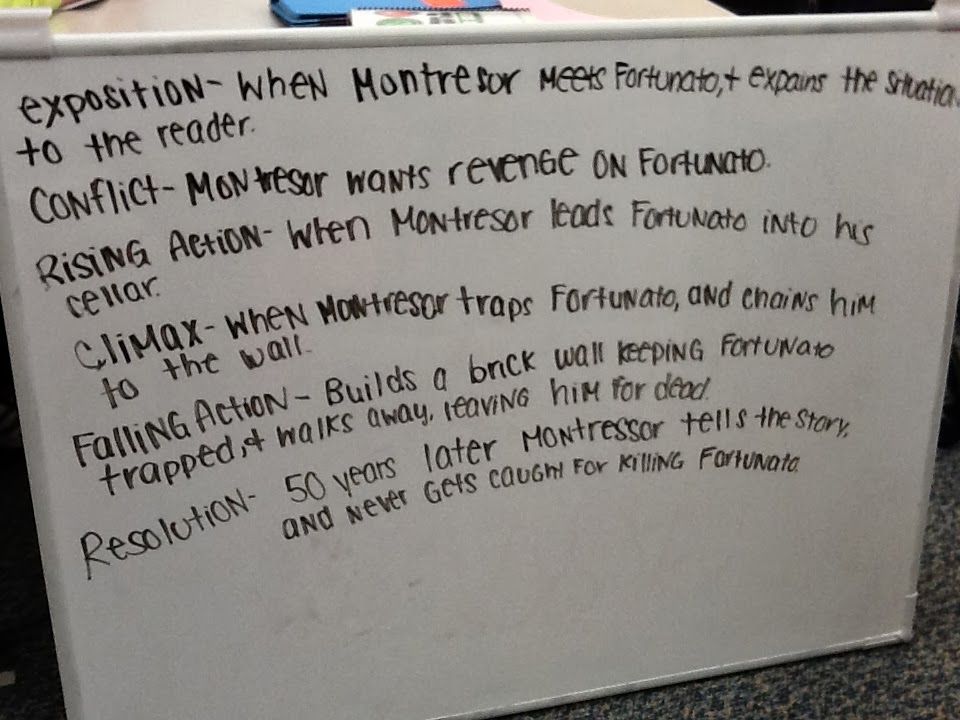 exposition- when Montresor meets Fortunato,+ expains the situation
to the reader.
Conflict- Montresor wants revenge on Fortunato.
Rising Action- when Montresor leads Fortunato into his
cellar.
Climax- when Montresor traps Fortunato, and chains him
to the wall.
Falling Action- Builds a brick wall keeping Fortunato
trapped,+ walks away, leaving him for dead.
Resolution- 50 years later Montressor tells the story,
and never gets caught for killing Fortunato.